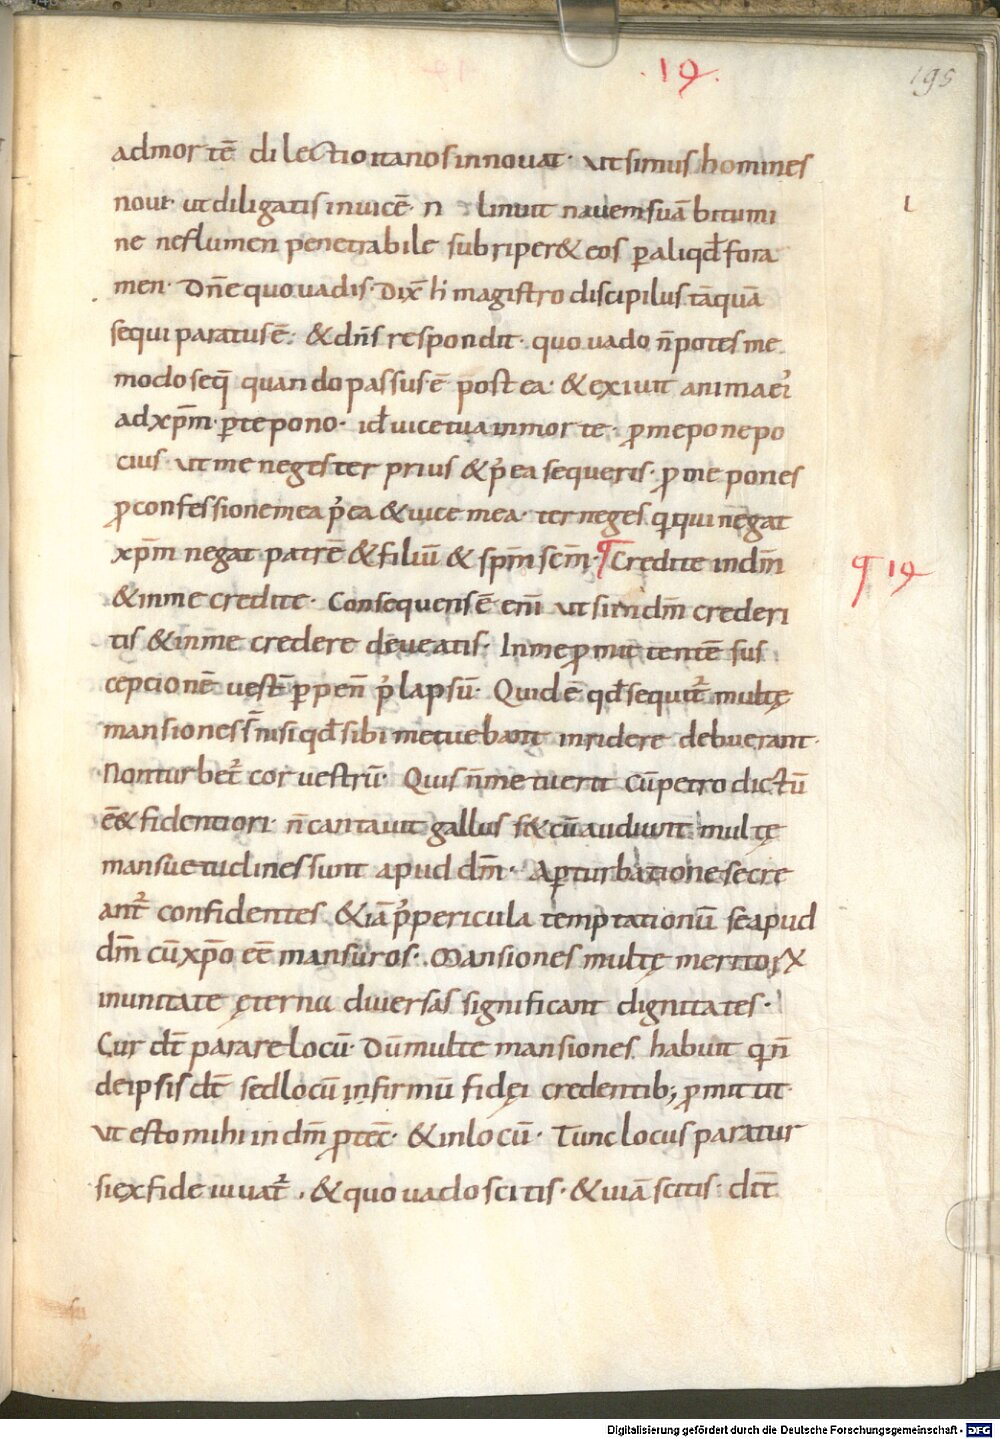 .19.
195
admortē dilectio itanos innouat· ut simus homines
noui· ut diligatis inuicē· n linuit nauem suā bitumi
ne ne flumen penetrabile subriper& eos p̱ aliqđ fora
men· Dn̄e quo uadis· Dix̄ h magistro discipulus tāquā
sequi paratus ē· & dn̄s respondit· quo uado n̄ potes me
modo seq̄ quando passus·ē post ea· & exiuit animaei᷒
ad xp̄m· p̱ te pono· iđ uice tua in morte· ꝓ me pone po
cius· ut me neges ter prius & p᷒ ea sequeris· ꝓ me pones
ꝓ confessione mea p᷒ ea & uice mea· ter neges q̱ qui negat
xp̄m negat patrē & filiū & sp̄m sc̄m· ¶ Credite in dm̄
& in me credite· Consequens ē eni̅ ut si in dm̄ crederi
tis & in me credere deueatis· In me ꝓmittentē sus
cepcionē uest̄ p̱ pen̄ p᷒ lapsū· Quid ē qđ sequit᷒ multę
mansiones s̄ nisi qđ sibi metuebant in ridere debuerant·
Non turbet᷒ cor uestrū· Quis n̄ me tuerit Cū petro dictū
ē & fidentiori· n̄ cantauit gallus s& cū audiunt multę
mansuetudines sunt apud dm̄· A p̱turbatione secre
ant᷒ confidentes & iā p᷒ pericula temptationū se apud
dm̄ cū xp̄o eē mansuros· Mansiones multę meritoꝝ
inunitate ęterna diuersas significant dignitates·
Cur dt̄ parare locū· Dū multe mansiones habuit q̱ n̄
de ipsis dt̄ sed locū in firmū fidei credentib; ꝓmittit·
ut esto mihi in dm̄ ꝓtec̄· & in locū· Tunc locus paratur
si ex fide iuuat᷒· & quo uado scitis· & uiā scitis· dt̄t
ι
¶ 19
Digitalisierung gefördert durch die Deutsche Forschungsgemeinschaft - DFG